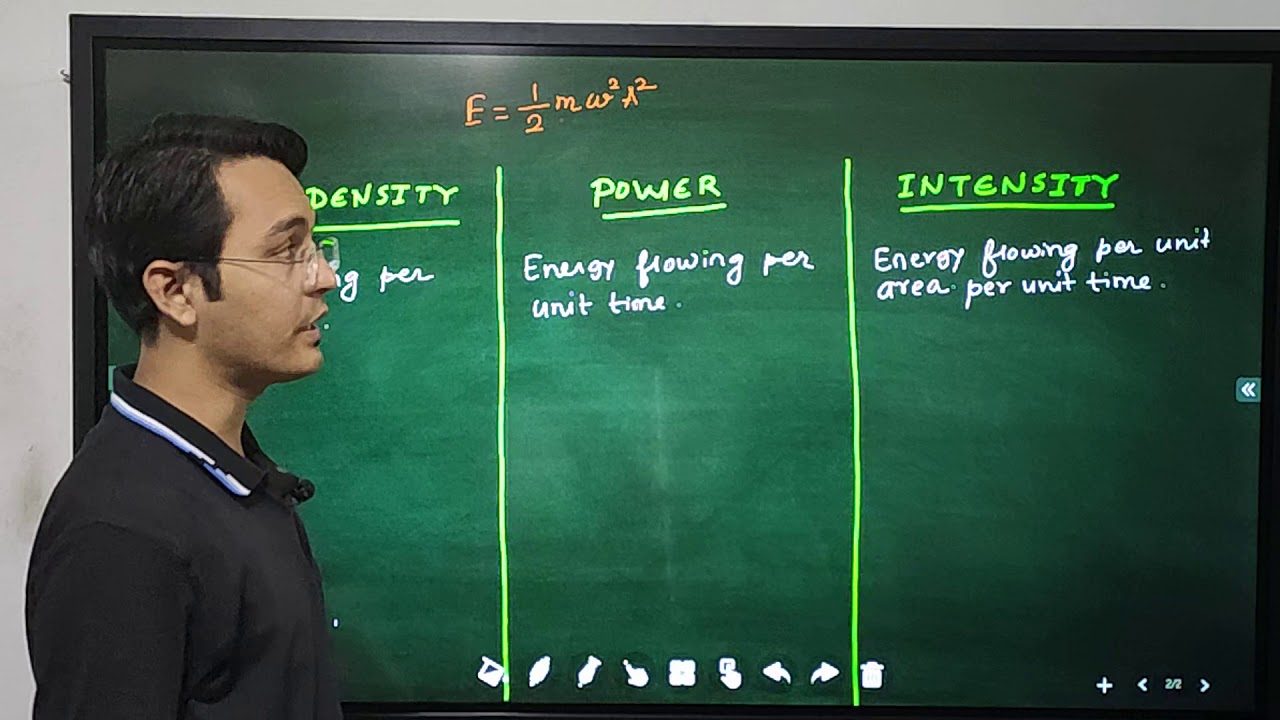 E = 1/2 mω²A²
DENSITY
per
POWER
Energy flowing per
unit time.
INTENSITY
Energy flowing per unit
area per unit time.
2/2